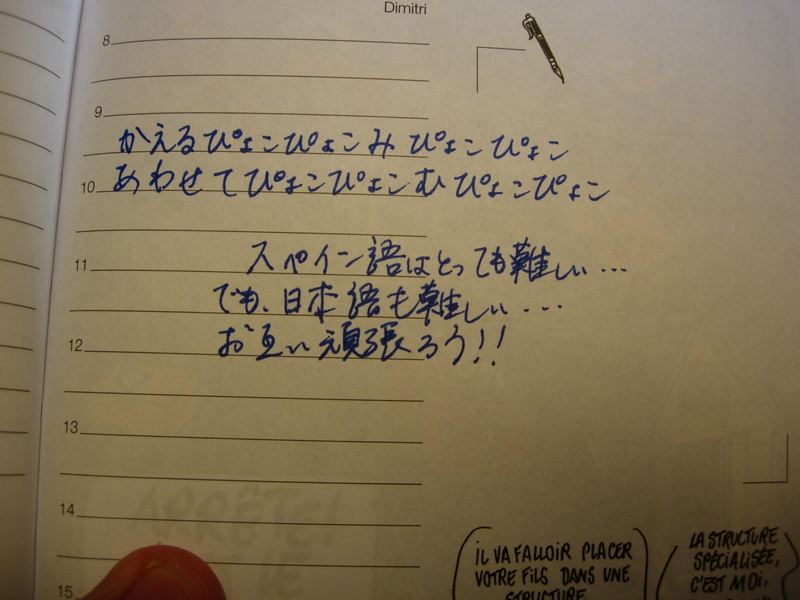 Dimitri
8
9
かえるぴょこぴょこみぴょこぴょこ
10 あわせてぴょこぴょこむぴょこぴょこ
11 スペイン語はとっても難しい…
でも、日本語も難しい…
12 お互い頑張ろう!!
13
14
ARRÊTE!
15
IL VA FALLOIR PLACER
VOTRE FILS DANS UNE
STRUCTURE
LA STRUCTURE
SPÉCIALISÉE,
C'EST MOI.